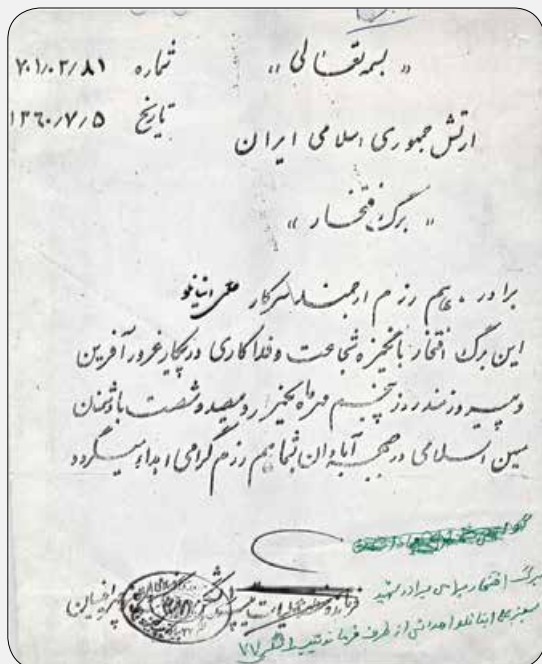 «بسمه تعالی» شماره ۷۰۱/۰۲/۸۱
تاریخ ۱۳۶۰/۷/۵
ارتش جمهوری اسلامی ایران
« برگ افتخار »
برادر . هم رزم ارجمند سرکار علی اینانلو
این برگ افتخار بانگیزه شجاعت و فداکاری در پیکار غرور آفرین
و پیروزمند روز پنجم مهرماه یکهزار و سیصد و شصت با دشمنان
میهن اسلامی در جبهه آبادان بشما هم رزم گرامی اهداء میگردد
برگ افتخار برای برادر شهید
علی اینانلو اهدائی از طرف فرمانده تیپ ۷۷